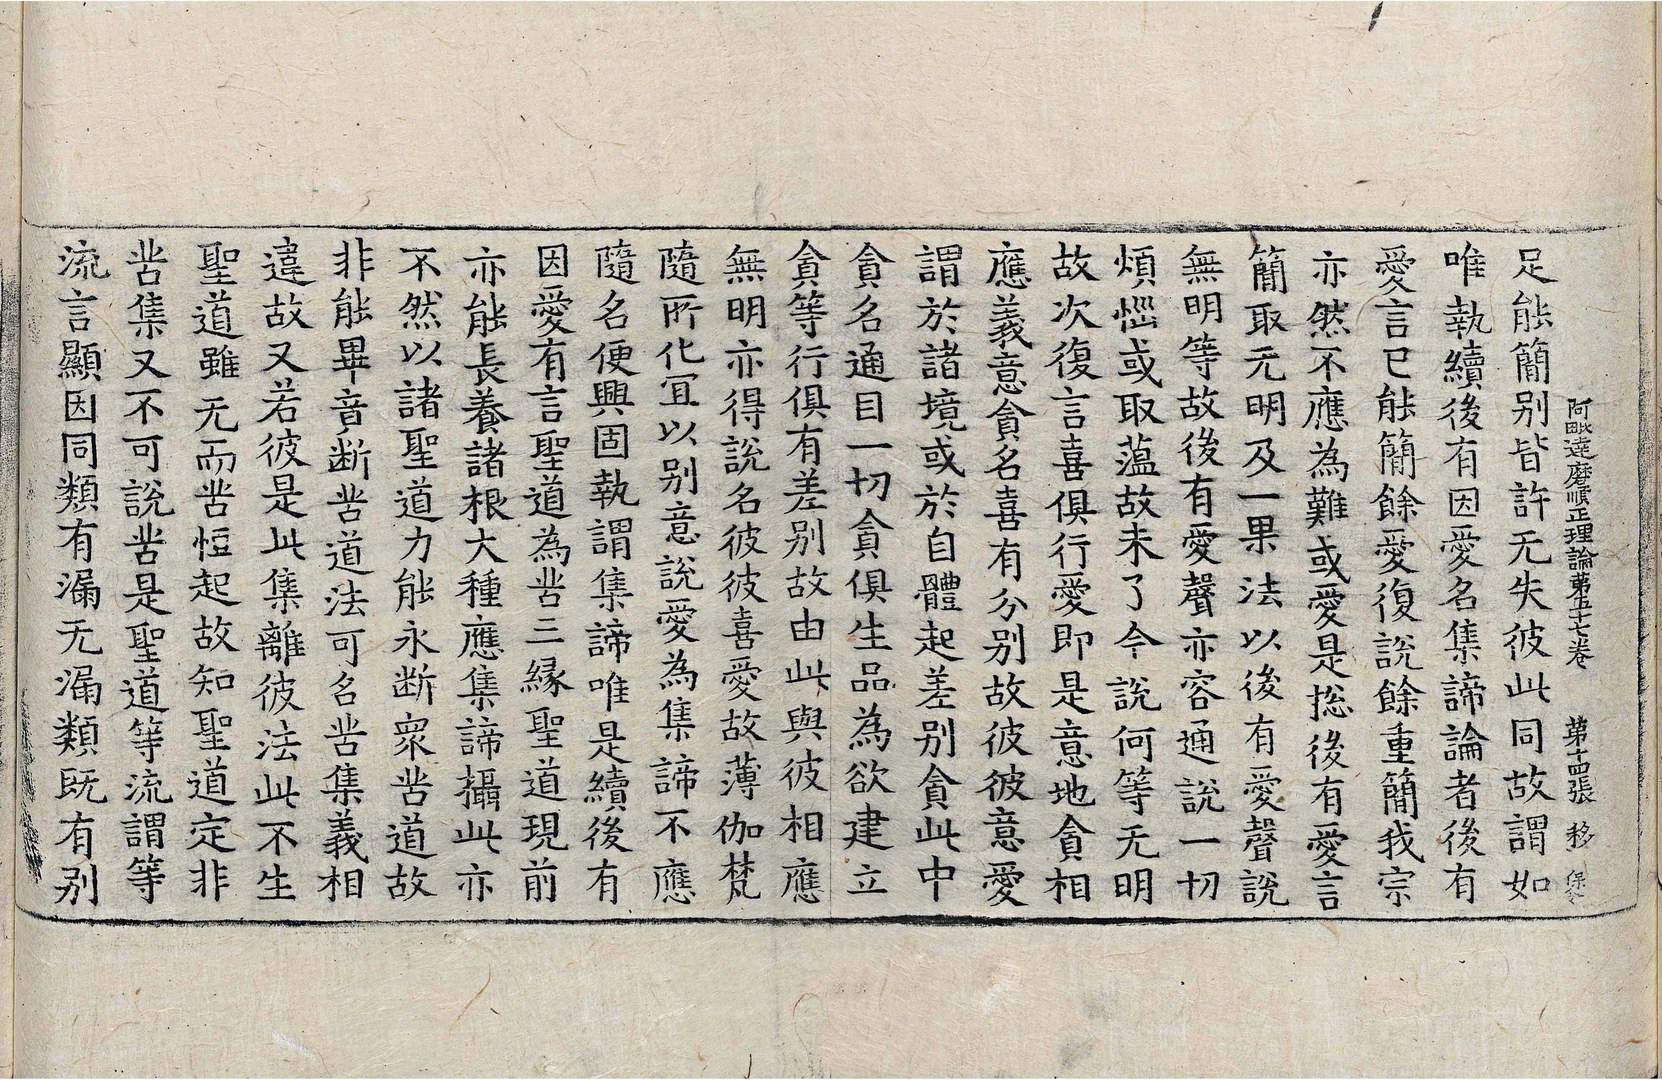 阿毗達磨順正理論第五十七卷 第十四張 移
足能簡別皆許无失彼此同故謂如
唯執續後有因愛名集諦論者後有
愛言已能簡餘愛復說餘重簡我宗
亦然不應為難或愛是揔後有愛言
簡取无明及一果法以後有愛聲說
無明等故後有愛聲亦容通說一切
煩惱或取薀故未了今說何等无明
故次復言喜俱行愛即是意地貪相
應義意貪名喜有分別故彼彼意愛
謂於諸境或於自體起差別貪此中
貪名通目一切貪俱生品為欲建立
貪等行俱有差別故由此與彼相應
無明亦得說名彼彼喜愛故薄伽梵
隨所化冝以別意說愛為集諦不應
隨名便興固執謂集諦唯是續後有
因愛有言聖道為苦三緣聖道現前
亦能長養諸根大種應集諦攝此亦
不然以諸聖道力能永斷衆苦道故
非能畢音斷苦道法可名苦集義相
違故又若彼是此集離彼法此不生
聖道雖无而苦恒起故知聖道定非
苦集又不可說苦是聖道等流謂等
流言顯因同類有漏无漏類既有別